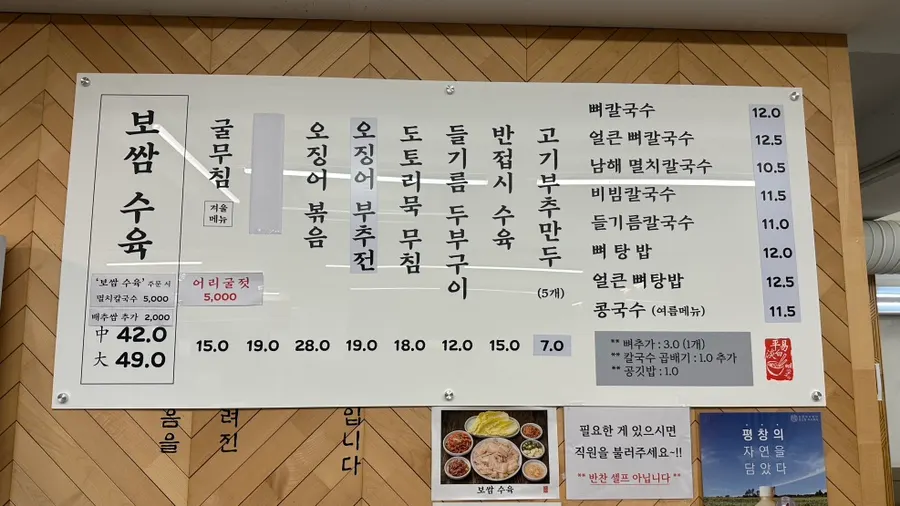 보쌈 수육
'보쌈 수육' 주문 시
멸치칼국수 5,000
배추쌈 추가 2,000
中 42.0
大 49.0
어리굴젓
5,000
굴무침
겨울
메뉴
15.0
19.0
오징어 볶음
28.0
오징어 부추전
19.0
도토리묵 무침
18.0
들기름 두부구이
12.0
반접시 수육
15.0
고기부추만두
(5개)
7.0
뼈칼국수 12.0
얼큰 뼈칼국수 12.5
남해 멸치칼국수 10.5
비빔칼국수 11.5
들기름칼국수 11.0
뼈 탕 밥 12.0
얼큰 뼈탕밥 12.5
콩국수 (여름메뉴) 11.5
** 뼈추가 : 3.0 (1개)
** 칼국수 곱배기 : 1.0 추가
** 공깃밥 : 1.0
음을
려진
입니다
보쌈 수육
필요한 게 있으시면
직원을 불러주세요~!!
** 반찬 셀프 아닙니다 **
평창의
자연을
담았다